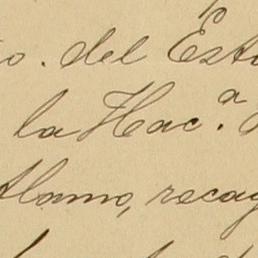 o. del Esta
la Hac.a
Alamo, recay